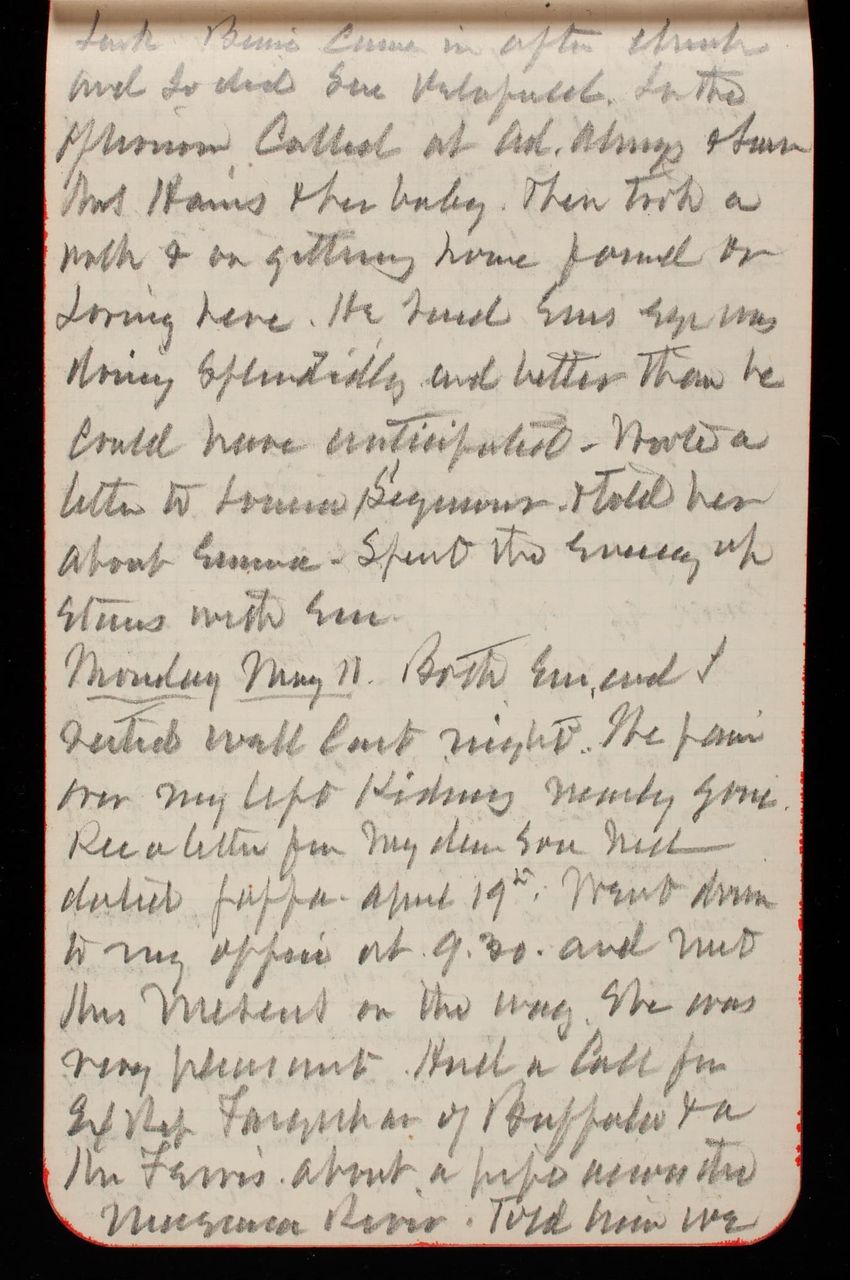 came in after church
and so did Sue In the
afternoon Called at Ad. & saw
Mrs & her baby. Then took a
walk & on getting home found Dr
Loring here. He said Ems eye was
doing splendidly and better than he
could have anticipated - Wrote a
letter to Seymour & told her
about Emma - Spent the Evening up
stairs with Em
Monday May 11. Both Em, and I
rested well last night. The pain
over my left Kidney nearly gone.
Rec a letter fm My dear Son Ned
dated Jaffa April 19th. Went down
to my office at 9.30. and met
Mrs on the way. She was
very pleasant. Had a call fm
Ex Rep Farquhar of Buffalo & a
Mr Ferris about a pipe across the
Niagara River. Told him we